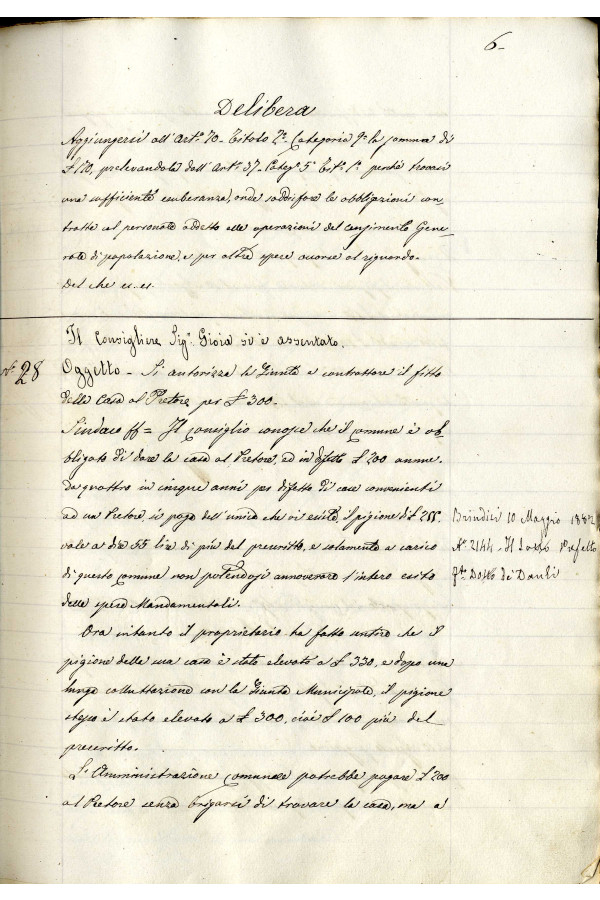 6-
Delibera
Aggiungersi all'Art.º 70- Titolo 2º- Categoria 9ª la somma di
£ 170, prelevandola dall'Art.º 37- Categª 5ª Titº 1º perché trovasi
una sufficiente esuberanza, onde soddisfare le obbligazioni con
tratte col personale addetto alle operazioni del censimento Gene-
rale di popolazione, e per altre spese occorse al riguardo.
Del che es. es.
Il Consigliere Sigr. Gioia si è assentato.
Nº 28
Oggetto - Si autorizza la Giunta a contrattare il fitto
della Casa al Pretore per £ 300-
Sindaco ff = Il Consiglio conosce che il Comune è ob-
bligato di dare la casa al Pretore, ed in difetto £ 200 annue.
Da quattro in cinque anni per difetto di case convenienti
ad un Pretore, si paga dell'unica che vi esiste, il pigione di £ 255.
vale a dire 55 lire di più del prescritto, e solamente a carico
di questo comune non potendosi annoverare l'intero esito
delle spese Mandamentali.
Brindisi 10 Maggio 1882
Nº 2144 - Il Sotto Prefetto
Fto Dotto De Donli
Ora intanto il proprietario ha fatto sentire che il
pigione della sua casa è stato elevato a £ 330, e dopo una
lunga colluttazione con la Giunta Municipale, il pigione
stesso è stato elevato a £ 300, cioè £ 100 più del
prescritto.
L'Amministrazione Comunale potrebbe pagare £ 200
al Pretore senza brigarsi di trovare la casa, ma a